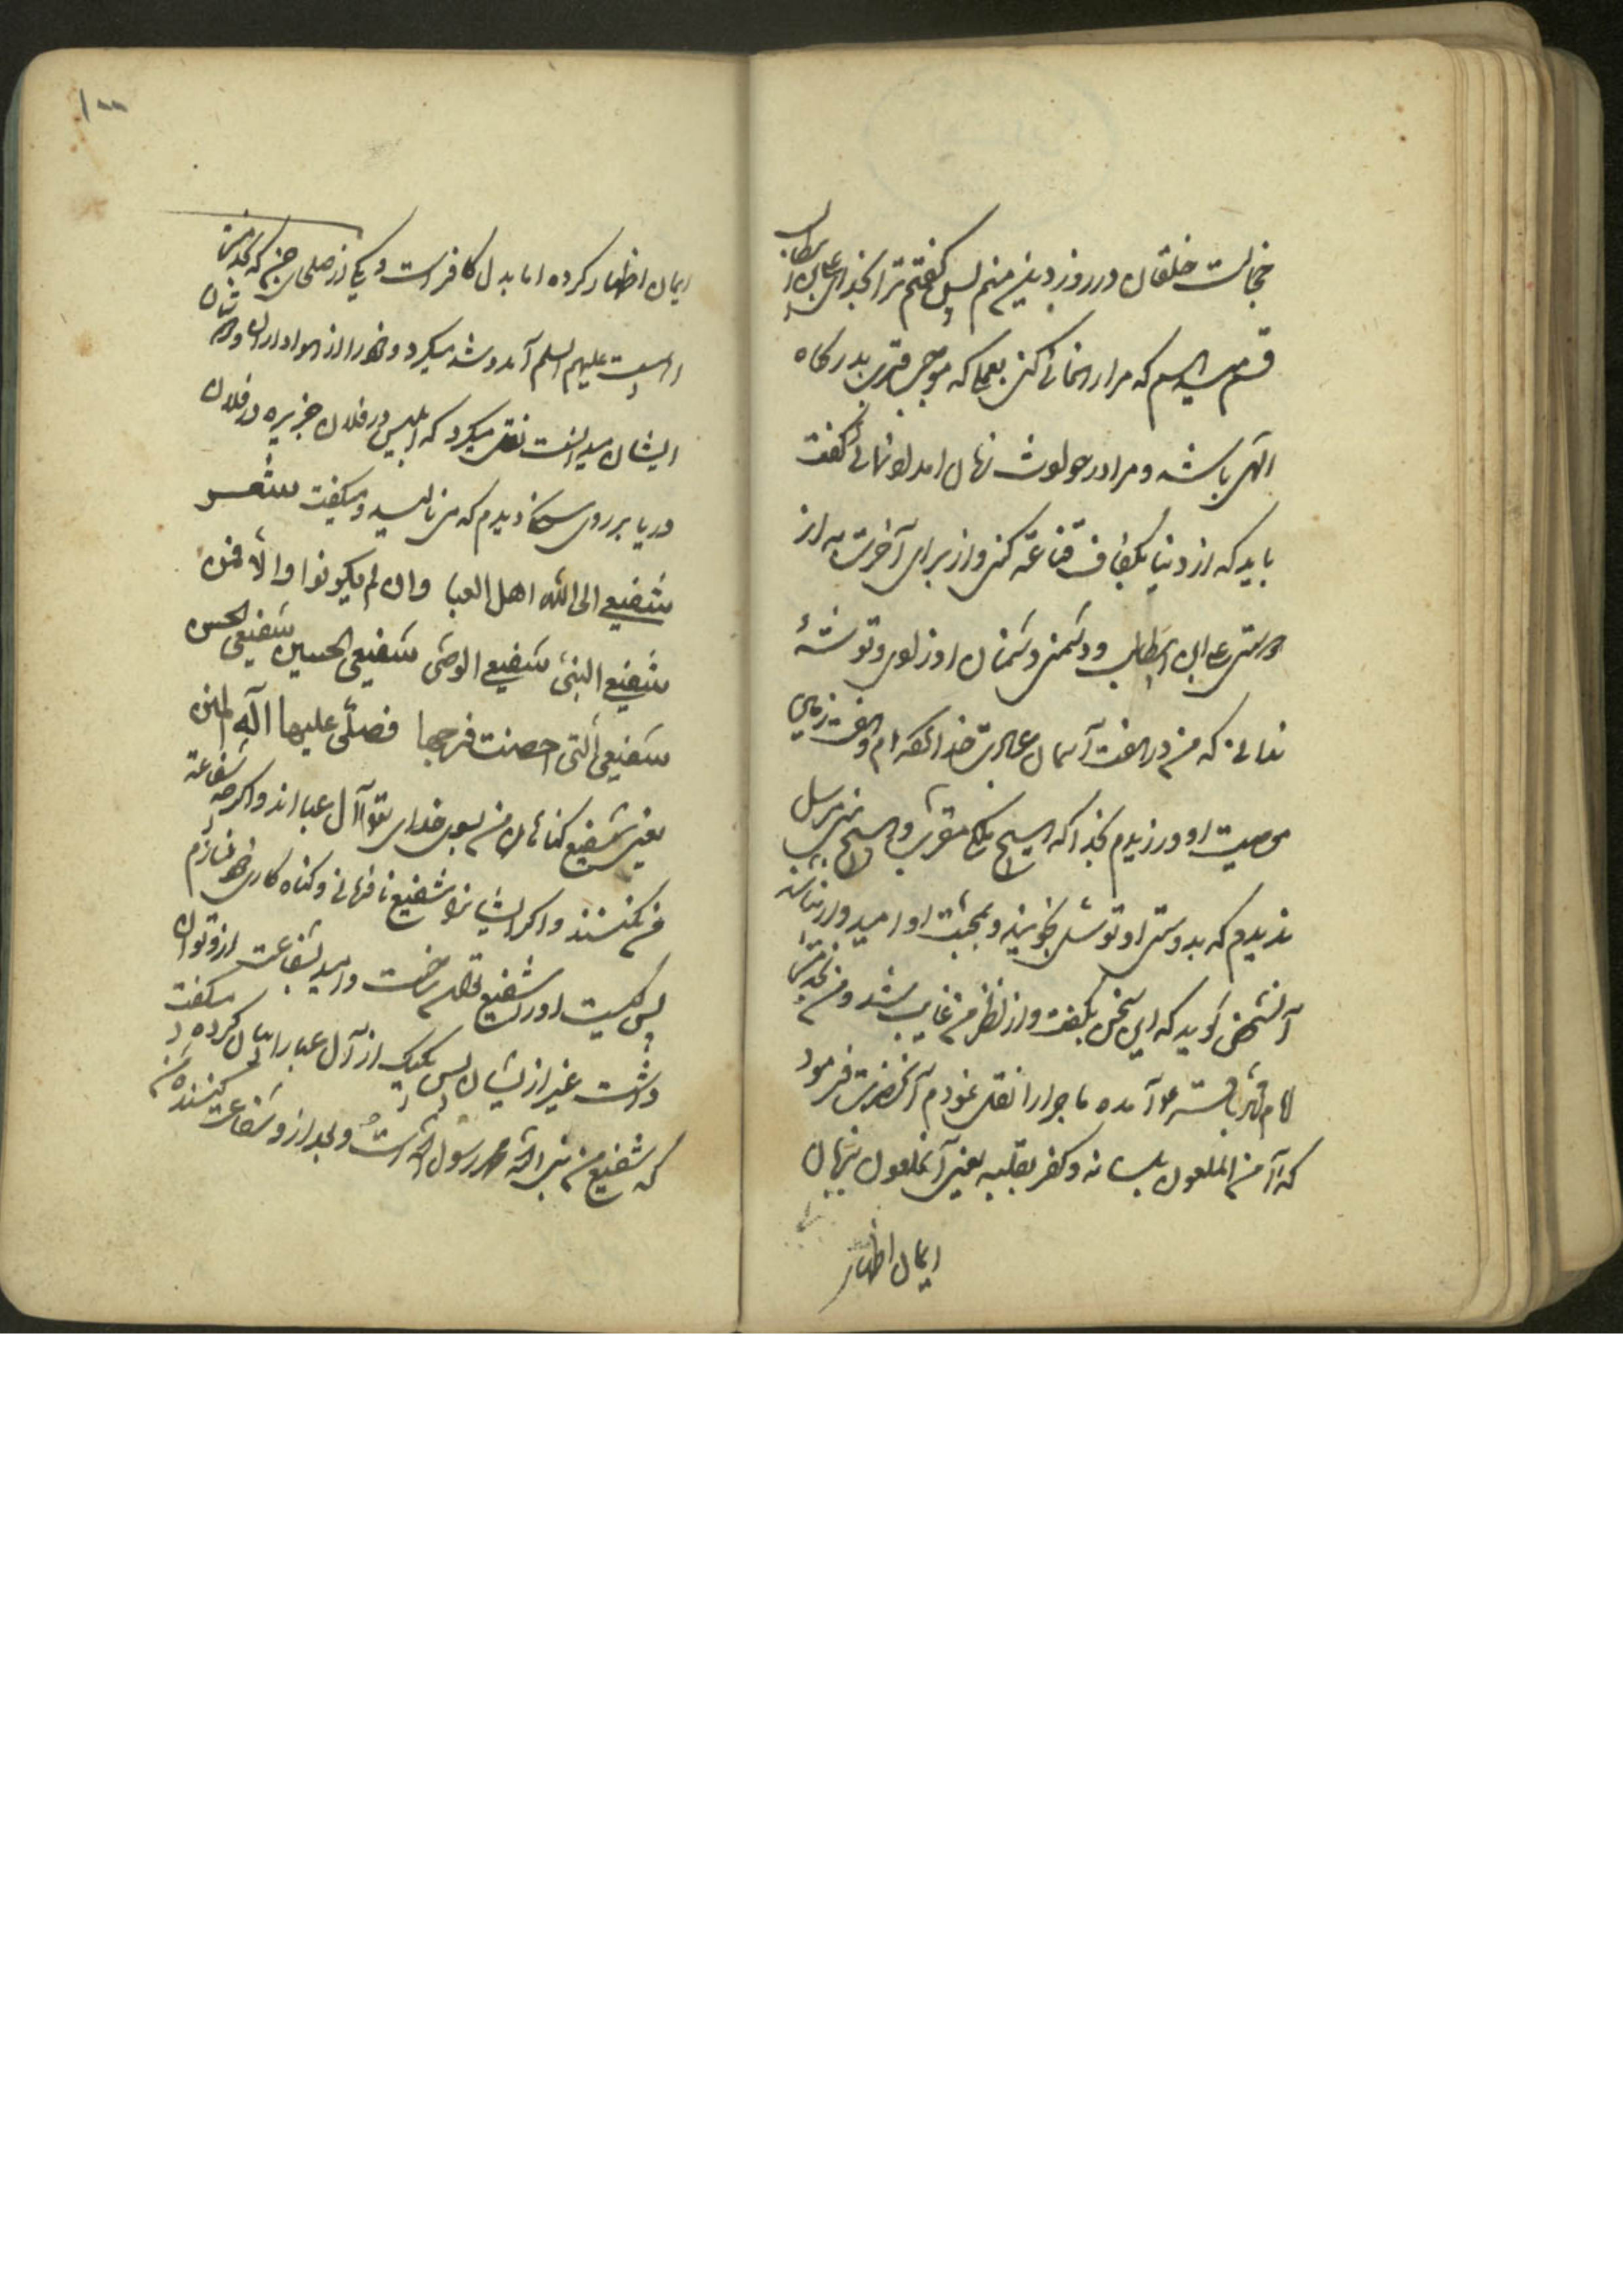 خجالت خلقان در روز دین منم پس گفتم ترا بخدای علی بن ابیطالب
قسم میدهم که مرا راهنمائی کنی بعملی که موجب قرب بدرگاه
الهی باشد و مرا در گفت
باید که از دنیا بکفاف قناعة کنی و از برای آخرت از
دوستی علی ابن ابیطالب و دشمنی دشمنان او توشهٔ
که من در هفت آسمان عبادت خدا کرده ام و در هفت زمین
معصیت او ورزیدم بخدا که هیچ ملک مقرب و هیچ نبی مرسل
ندیدم که بدوستی او توسل نجویند و بمحبت او امیدوار نباشند
آنشخص گوید که این سخن بگفت و از نظر من غایب شد و من بخدمت
امام محمد باقر آمده ماجرا را نقل نمودم آنحضرت فرمود
که آمن الملعون بلسانه و کفر بقلبه یعنی آنملعون بزبان
ایمان اظهار
۱۰۰
ایمان اظهار کرده اما بدل کافر است و یکی از صلحای جن که بخدمت
اهلبیت علیهم السلم آمد و شد میکرد و خود را از هواداران و
ایشان میدانست نقل میکرد که ابلیس در فلان جزیره در فلان
دریا بر روی سنگ دیدم که می نالید و میگفت شعر
شفیعی الی الله اهل العبا وان لم یکونوا والا فمن
شفیعی النبی شفیعی الوصی شفیعی الحسین شفیعی الحسن
شفیعی التی احصنت فرجها فصلی علیها اله المنن
یعنی شفیع گناهان من بسوی خدای تعو آل عبا اند و اگر چه شفاعة
من نکنند و اگر ایشانرا شفیع نافرمانی و گناه کاری خود نسازم
پس کیست او را شفیع توانم ساخت و امید بشفاعت ازو توان
داشت غیر از ایشان پس یکیک از آل عبا را بیان کرده میگفت
که شفیع من نبی الله محمد رسول الله است و بعد ازو شفاعت کننده من